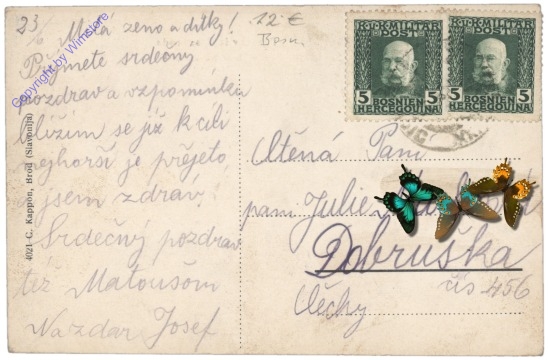 23/
12 €
Bosn.
Milá ženo a dítky!
Přijmete srdečný
pozdrav a vzpomínku
blížím se již k cíli
nejhorší je přejeto
jsem zdráv.
Srdečný pozdrav
též Matoušom
Nazdar Josef
Copyright by Winstore
4021 C. Kappon, Brod (Slavonija)
K.u.K. MILITÄR
POST
5 5
BOSNIEN
HERCEGOVINA
K.u.K. MILITÄR
POST
5 5
BOSNIEN
HERCEGOVINA
Ctěná Paní
paní Julie
Dobruška
čís 456
Čechy